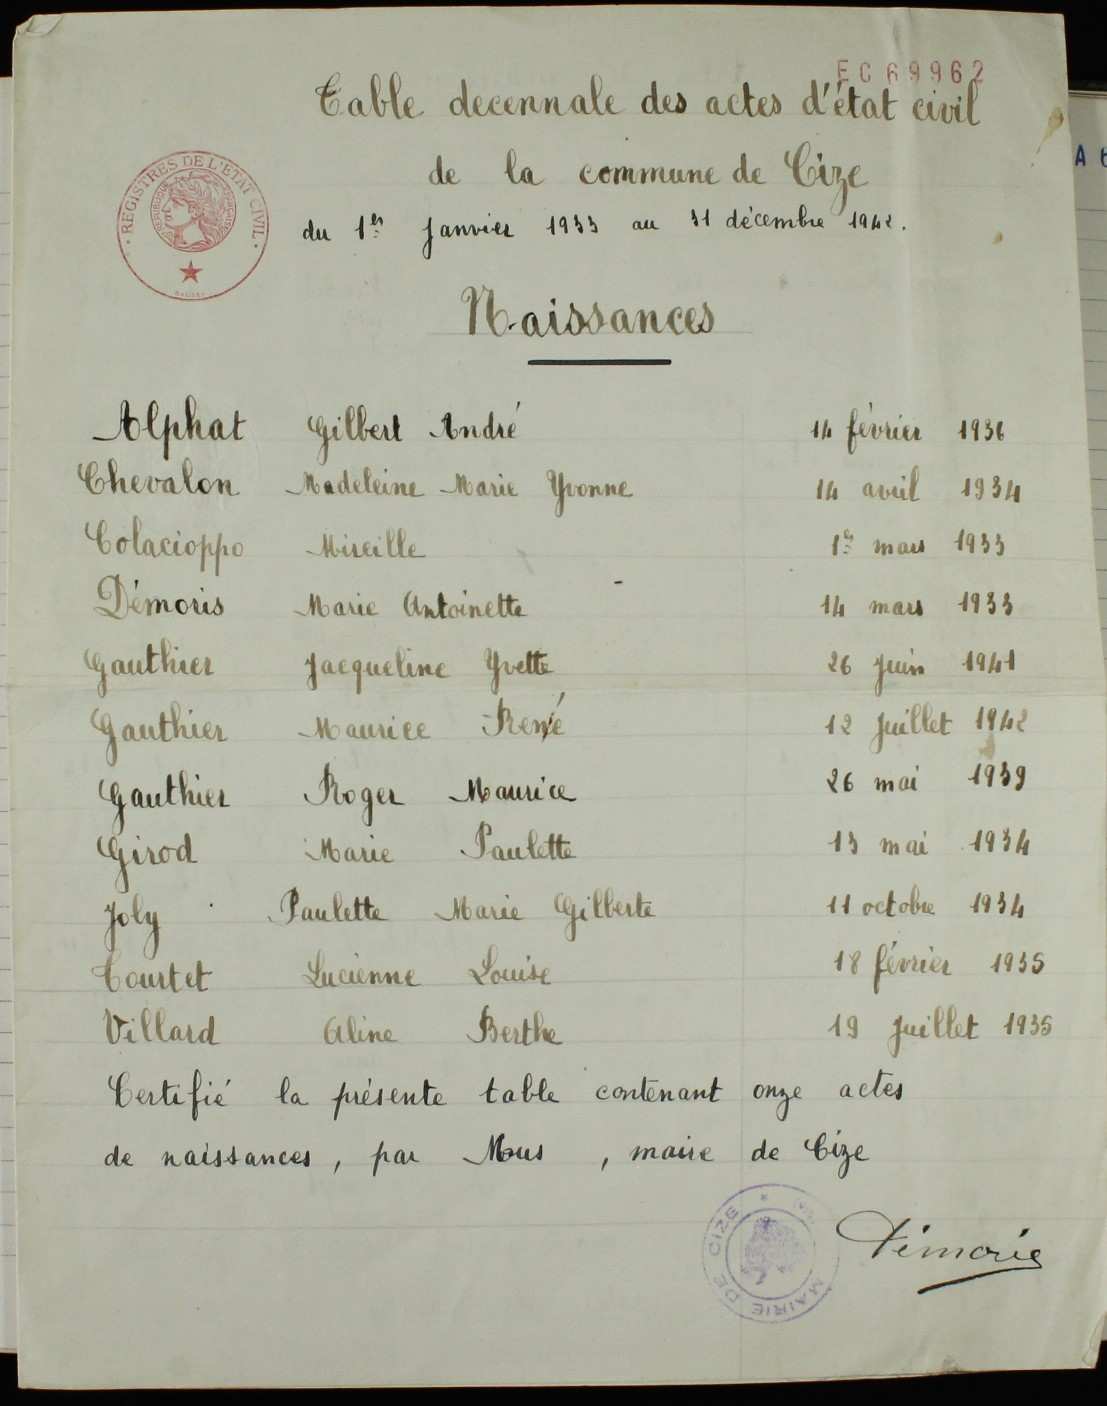 EC 69962
Table decennale des actes d'état civil
de la commune de Cize
du 1er Janvier 1933 au 31 décembre 1942.
REGISTRES DE L'ETAT CIVIL
REPUBLIQUE FRANÇAISE
Naissances
Alphat Gilbert André 14 février 1936
Chevalon Madeleine Marie Yvonne 14 avril 1934
Colacioppo Mireille 1er mars 1933
Démoris Marie Antoinette 14 mars 1933
Gauthier Jacqueline Yvette 26 Juin 1941
Gauthier Maurice René 12 Juillet 1942
Gauthier Roger Maurice 26 mai 1939
Girod Marie Paulette 13 mai 1934
Joly Paulette Marie Gilberte 11 octobre 1934
Tourtet Lucienne Louise 18 février 1935
Villard Aline Berthe 19 Juillet 1935
Certifié la présente table contenant onze actes
de naissances, par Nous, maire de Cize
MAIRIE DE CIZE
Démoris